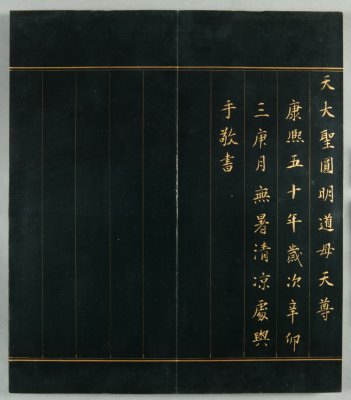 天大聖圓明道母天尊
康熙五十年歲次辛卯
三庚月無暑清凉處與
手敬書